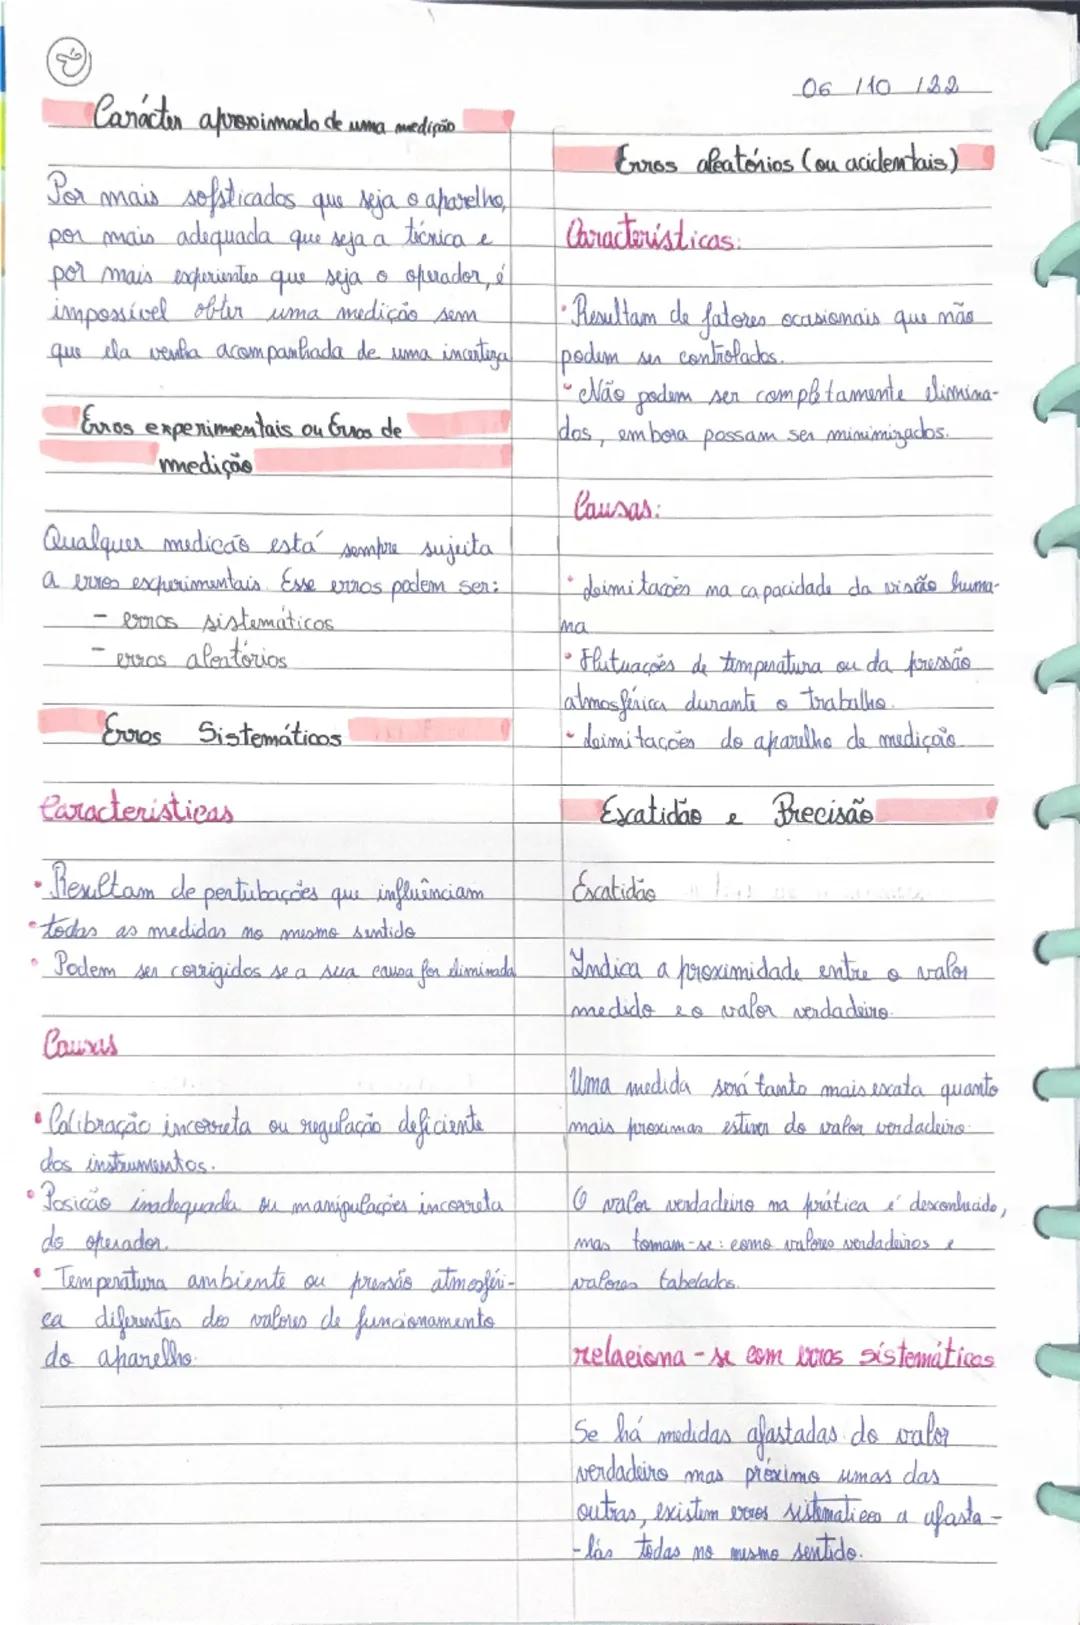 06 / 10 / 22
Carácter aproximado de uma medição
Por mais sofsticados que seja o aparelho,
por mais adequada que seja a técnica e
por mais experientes que seja o operador, é
impossível obter uma medição sem
que ela venha acompanhada de uma incerteza
Erros experimentais ou Erros de
medição
Qualquer medicão está sempre sujeita
a erros experimentais. Esse erros podem ser:
- erros sistemáticos
- erros aleatórios
Erros Sistemáticos
Caracteristicas
• Resultam de pertubações que influênciam
• todas as medidas no mesmo sentido
• Podem ser corrigidos se a sua causa for eliminada
Causas
• Calibração incorreta ou regulação deficiente
dos instrumentos.
• Posicão inadequada ou manipulações incorreta
do operador.
• Temperatura ambiente ou pressão atmosféri-
ca diferentes dos valores de funcionamento
do aparelho.
Erros aleatórios (ou acidentais)
Características:
• Resultam de fatores ocasionais que não
podem ser controlados.
• Não podem ser completamente elimina-
dos, embora possam ser minimizados.
Causas:
• Leimitacões na capacidade da visão huma-
na
• Flutuações de temperatura ou da pressão
atmosférica durante o trabalho.
• Leimitações do aparelho de medição.
Excatidão e Precisão
Excatidão
Indica a proximidade entre o valor
medido e o valor verdadeiro.
Uma medida será tanto mais exata quanto
mais proximas estiver do valor verdadeiro.
O valor verdadeiro na prática é desconhecido,
mas tomam-se: como valores verdadeiros e
valores tabelados.
relaciona-se com erros sistemáticos
Se há medidas afastadas do valor
verdadeiro mas próximo umas das
outras, existem erros sistematicos a afasta-
-las todas no mesmo sentido.